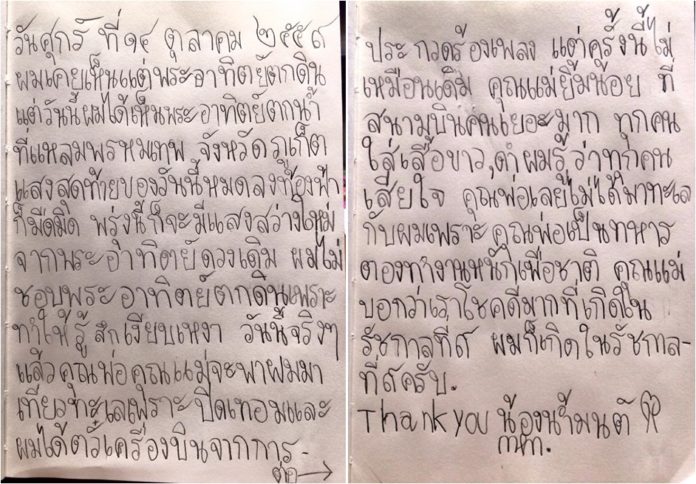 วันศุกร์ ที่๑๔ ตุลาคม ๒๕๕๙
ผมเคยเห็นแต่พระอาทิตย์ตกดิน
แต่วันนี้ผมได้เห็นพระอาทิตย์ตกน้ำ
ที่แหลมพรหมเทพ จังหวัดภูเก็ต
แสงสุดท้ายของวันนี้หมดลงท้องฟ้า
ก็มืดมิด พรุ่งนี้ก็จะมีแสงสว่างใหม่
จากพระอาทิตย์ดวงเดิม ผมไม่
ชอบพระอาทิตย์ตกดินเพราะ
ทำให้รู้สึกเงียบเหงา วันนี้จริงๆ
แล้วคุณพ่อคุณแม่จะพาผมมา
เที่ยวทะเลเพราะปิดเทอมและ
ผมได้ตั๋วเครื่องบินจากการ-
ต่อ→
ประกวดร้องเพลง แต่ครั้งนี้ไม่
เหมือนเดิม คุณแม่ยิ้มน้อย ที่
สนามบินคนเยอะมาก ทุกคน
ใส่เสื้อขาว,ดำผมรู้ว่าทุกคน
เสียใจ คุณพ่อเลยไม่ได้มาทะเล
กับผมเพราะคุณพ่อเป็นทหาร
ตองทำงานหนักเพื่อชาติ คุณแม่
บอกว่าเราโชคดีมากที่เกิดใน
รัชกาลที่๙ ผมก็เกิดในรัชกาล-
ที่๙ครับ.
Thank you น้องน้ำมนต์